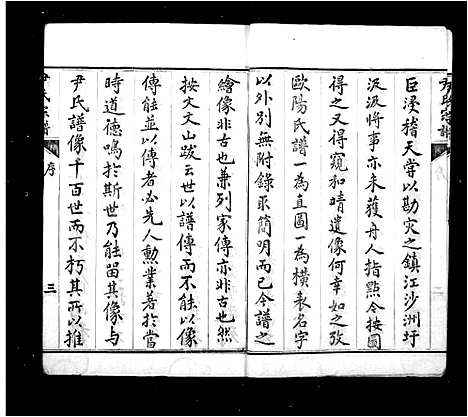 尹氏宗譜
巨浸稽天嘗以勘災之鎮江沙洲圩
汲汲將事亦未獲舟人指點今按圖
得之又得窺和晴遺像何幸如之攷
歐陽氏譜一為直圖一為橫表名字
以外別無附錄求簡明而已今譜之
繪像非古也兼列家傳亦非古也然
按文文山跋云世以譜傳而不能以像
傳能並以傳者必先人勳業著於當
時道德鳴於斯世乃能留其像與
尹氏譜像千百世而不朽其所以推
尹氏宗譜
序
三